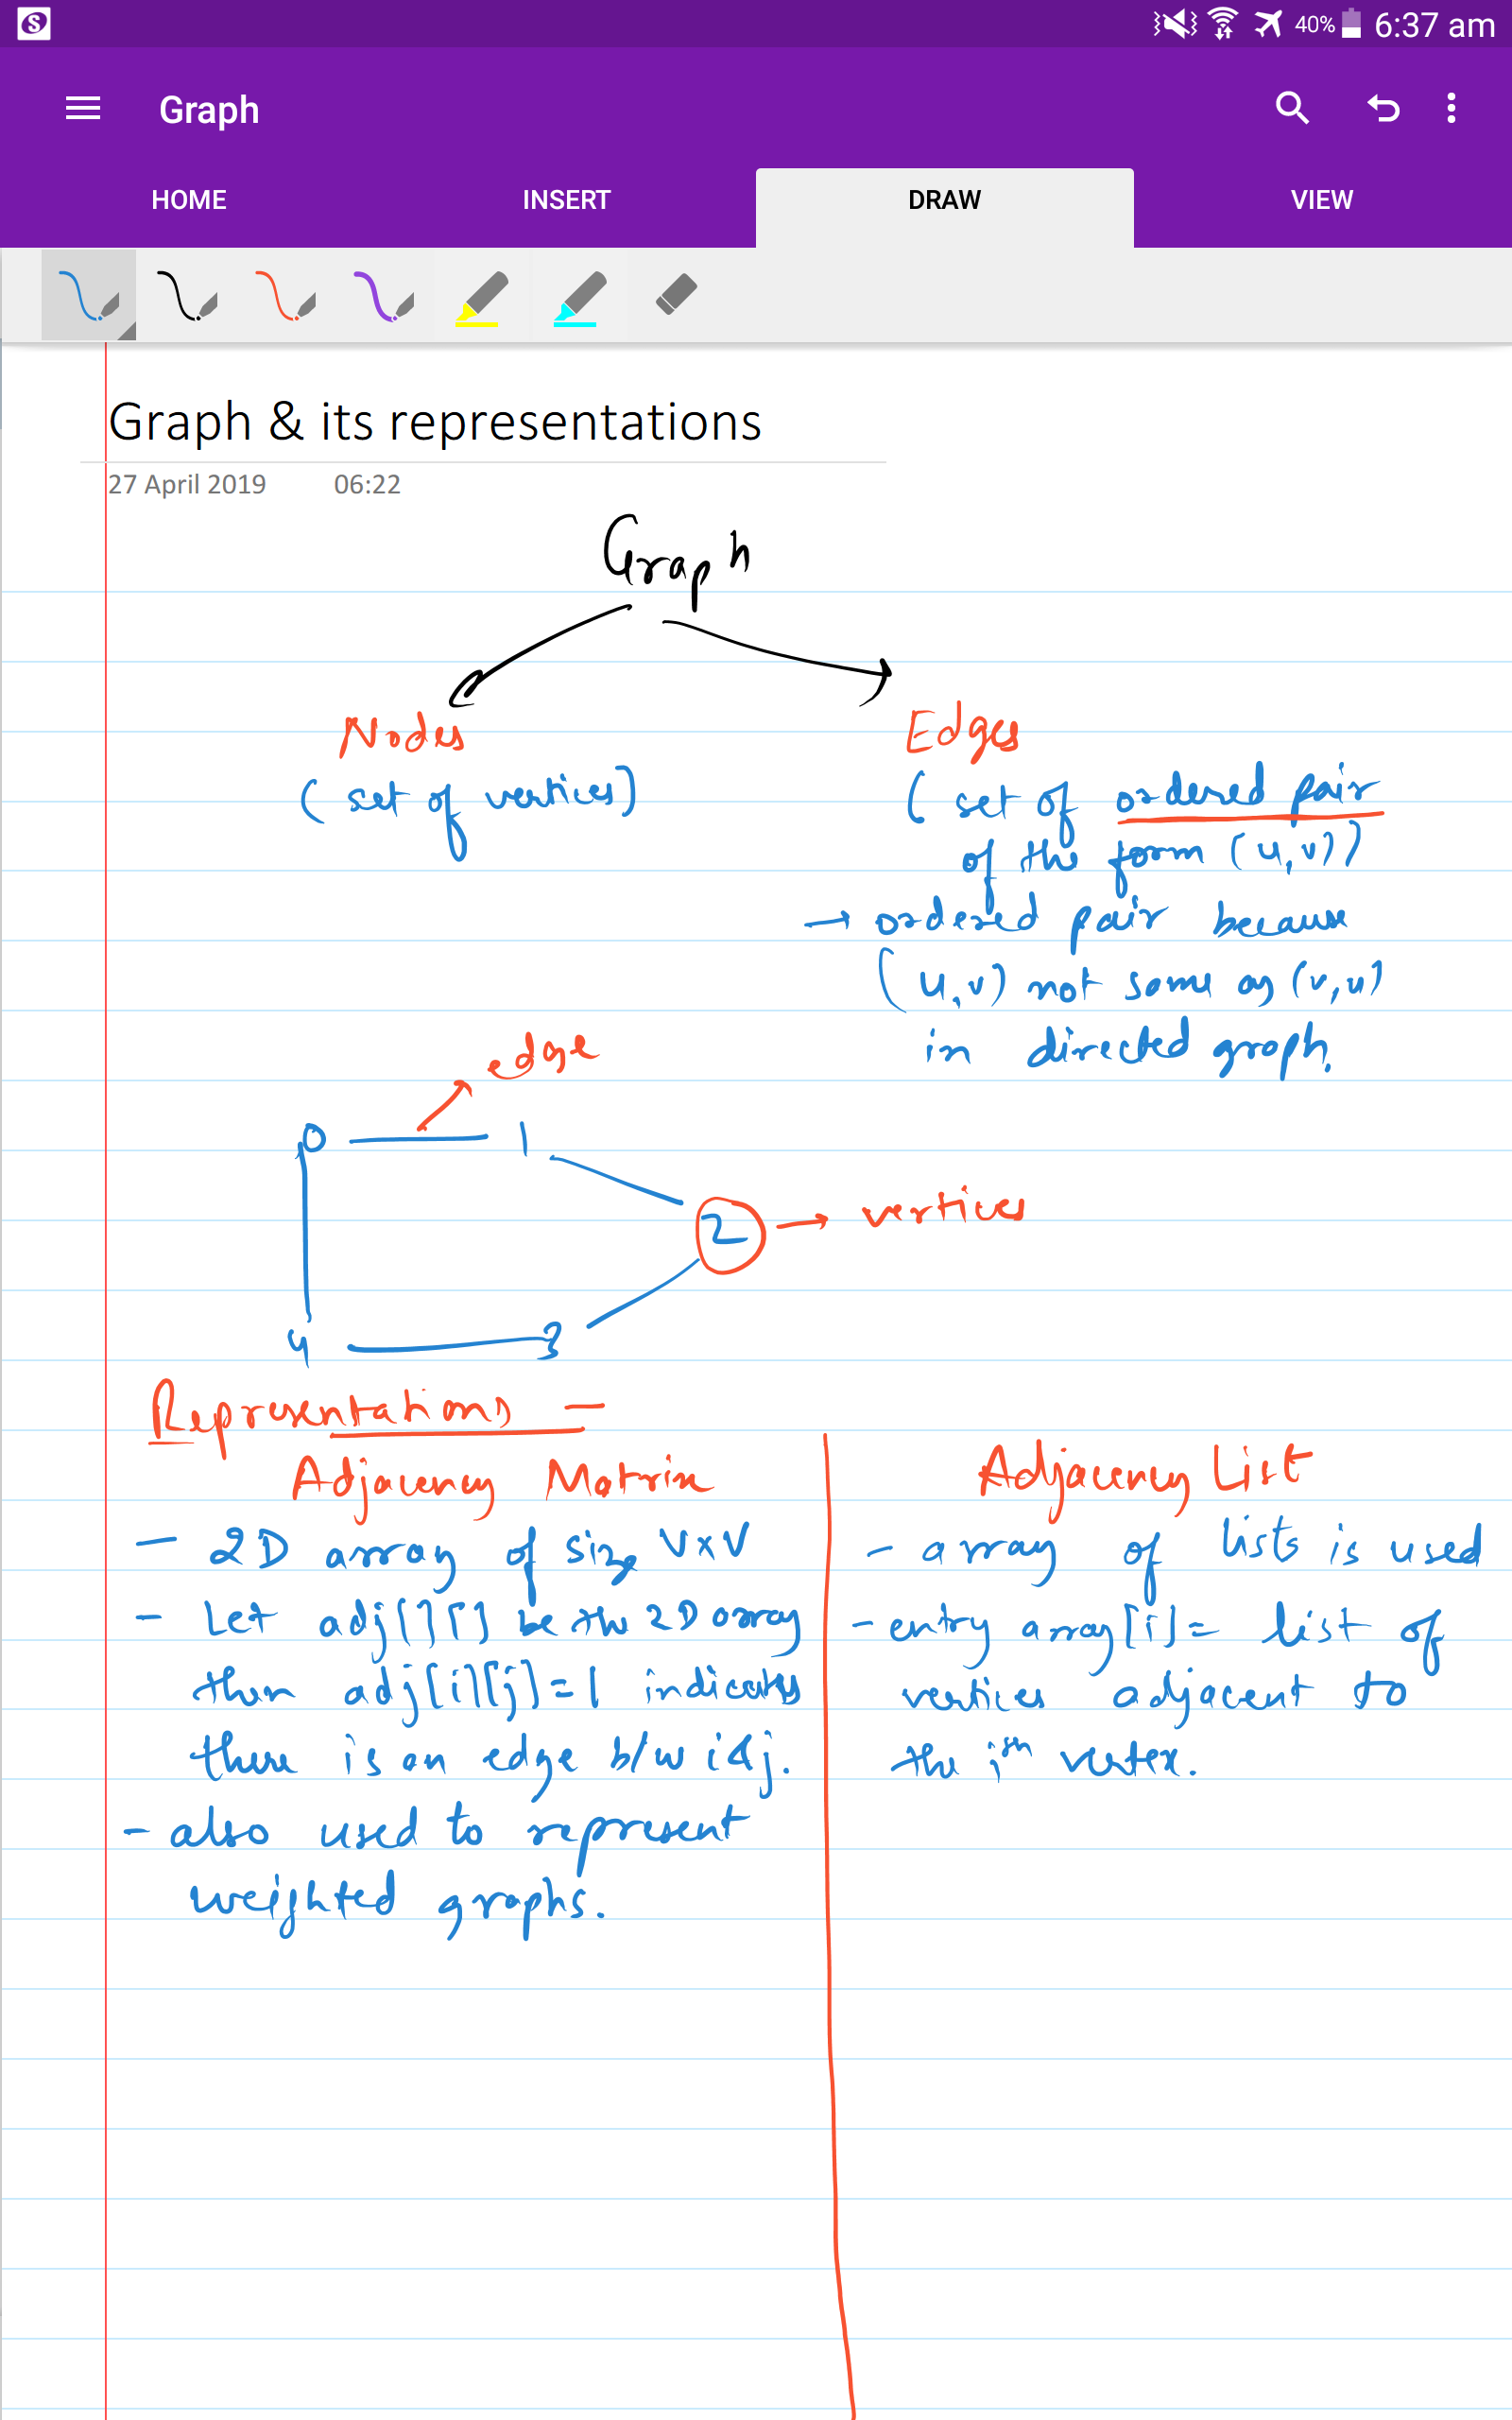 40% 6:37 am
Graph
HOME INSERT DRAW VIEW
Graph & its representations
27 April 2019 06:22
Graph
Nodes
(set of vertices)
Edges
(set of ordered pair
of the form (u,v))
→ ordered pair because
(u,v) not same as (v,u)
in directed graph.
edge
0 1
2 → vertices
4 3
Representations =
Adjacency Matrix
- 2D array of size V×V
- Let adj[][] be the 2D array
then adj[i][j]=1 indicates
there is an edge b/w i & j.
- also used to represent
weighted graphs.
Adjacency List
- array of lists is used
- entry array[i] = list of
vertices adjacent to
the ith vertex.